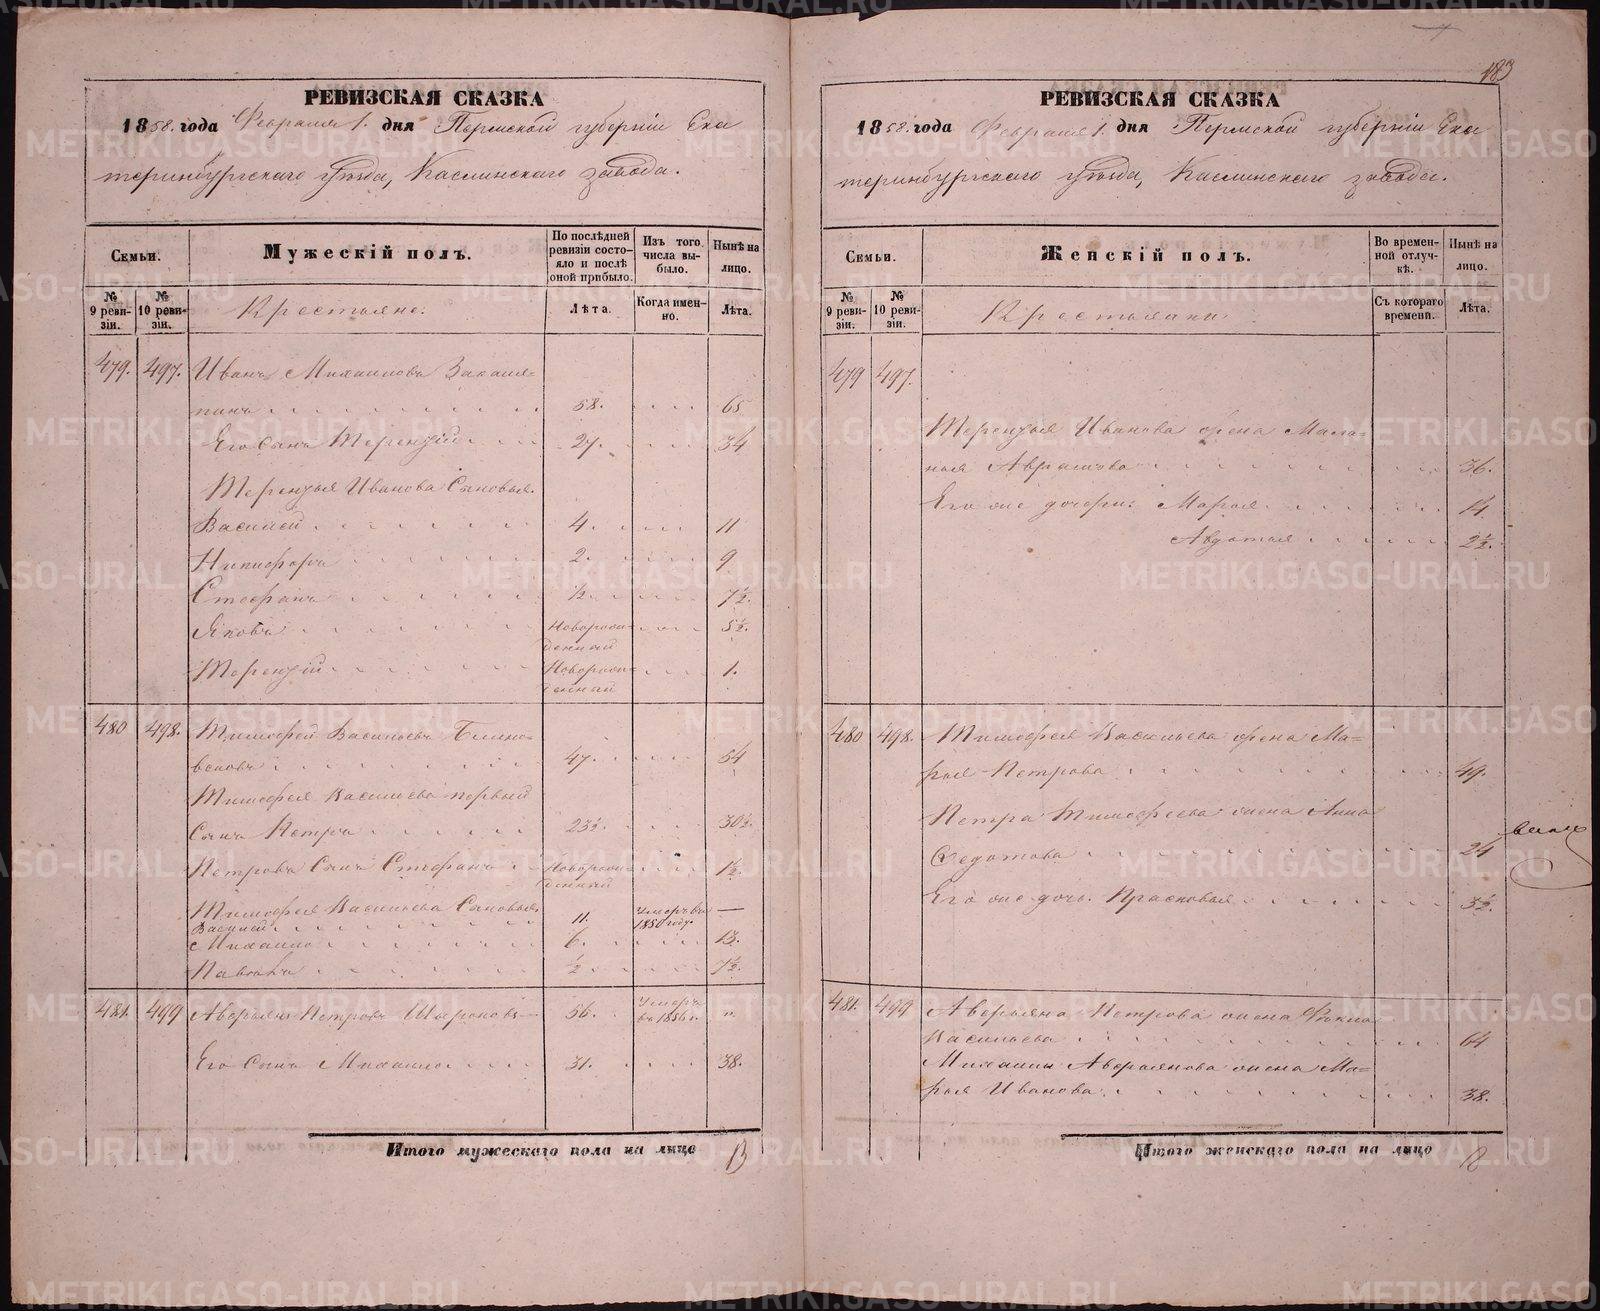 183
РЕВИЗСКАЯ СКАЗКА
1858. года Февраля 1. дня Пермской губернiи Ека
теринбургскаго уѣзда, Каслинскаго завода.
Семьи.
Мужескiй полъ.
По послѣдней ревизiи состояло и послѣ оной прибыло.
Изъ того числа выбыло.
Нынѣ на лицо.
№ 9 ревизiи.
№ 10 ревизiи.
Крестьяне.
Лѣта.
Когда именно.
Лѣта.
479. 497. Иванъ Михаиловъ
58. 65
Его сынъ Терентiй 27. 34
Терентья Иванова сыновья.
Василей 4. 11
Никифоръ 2. 9
Стефанъ ½. 7½.
Яковъ Новорож- 5½.
денный
Терентiй Новорож- 1.
денный
480 498. Тимофей Васильевъ
47. 54
Тимофея Васильева первый
сынъ Петръ 23½. 30½.
Петровъ сынъ Стефанъ Новорож- 1½.
денный
Тимофея Васильева сыновья. умеръ въ —
Василей 11. 1850 году.
Михаило 6. 13.
Павелъ ½ 7½.
481. 499 Аверьянъ Петровъ 56. умеръ въ 1856 г. "
Его сынъ Михаило 31. 38.
Итого мужескаго пола на лицо 13
РЕВИЗСКАЯ СКАЗКА
1858. года Февраля 1. дня Пермской губернiи Ека
теринбургскаго уѣзда, Каслинскаго завода.
Семьи.
Женскiй полъ.
Во временной отлучкѣ.
Нынѣ на лицо.
№ 9 ревизiи.
№ 10 ревизiи.
Крестьянки.
Съ котораго времени.
Лѣта.
479 497.
Терентья Иванова жена Мала-
нья Аврамова 36.
Его же дочери: Марья 14
Авдотья 2½.
480 498. Тимофея Васильева жена Ма=
рья Петрова 49.
Петра Тимофеева жена Анна
Федотова 24
Его же дочь. Прасковья 3½.
481. 499 Аверьяна Петрова жена Фекла
Васильева 64
Михаилы Аверьянова жена Ма=
рья Иванова 38.
Итого женскаго пола на лицо
METRIKI.GASO-URAL.RU